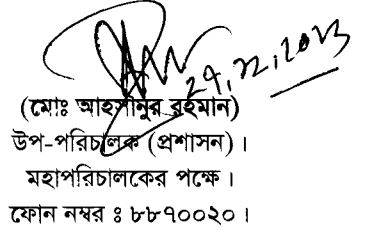 ২৭,১২,২০২৩
(মোঃ আহসানুর রহমান)
উপ-পরিচালক (প্রশাসন)।
মহাপরিচালকের পক্ষে।
ফোন নম্বর ঃ ৮৮৭০০২০।